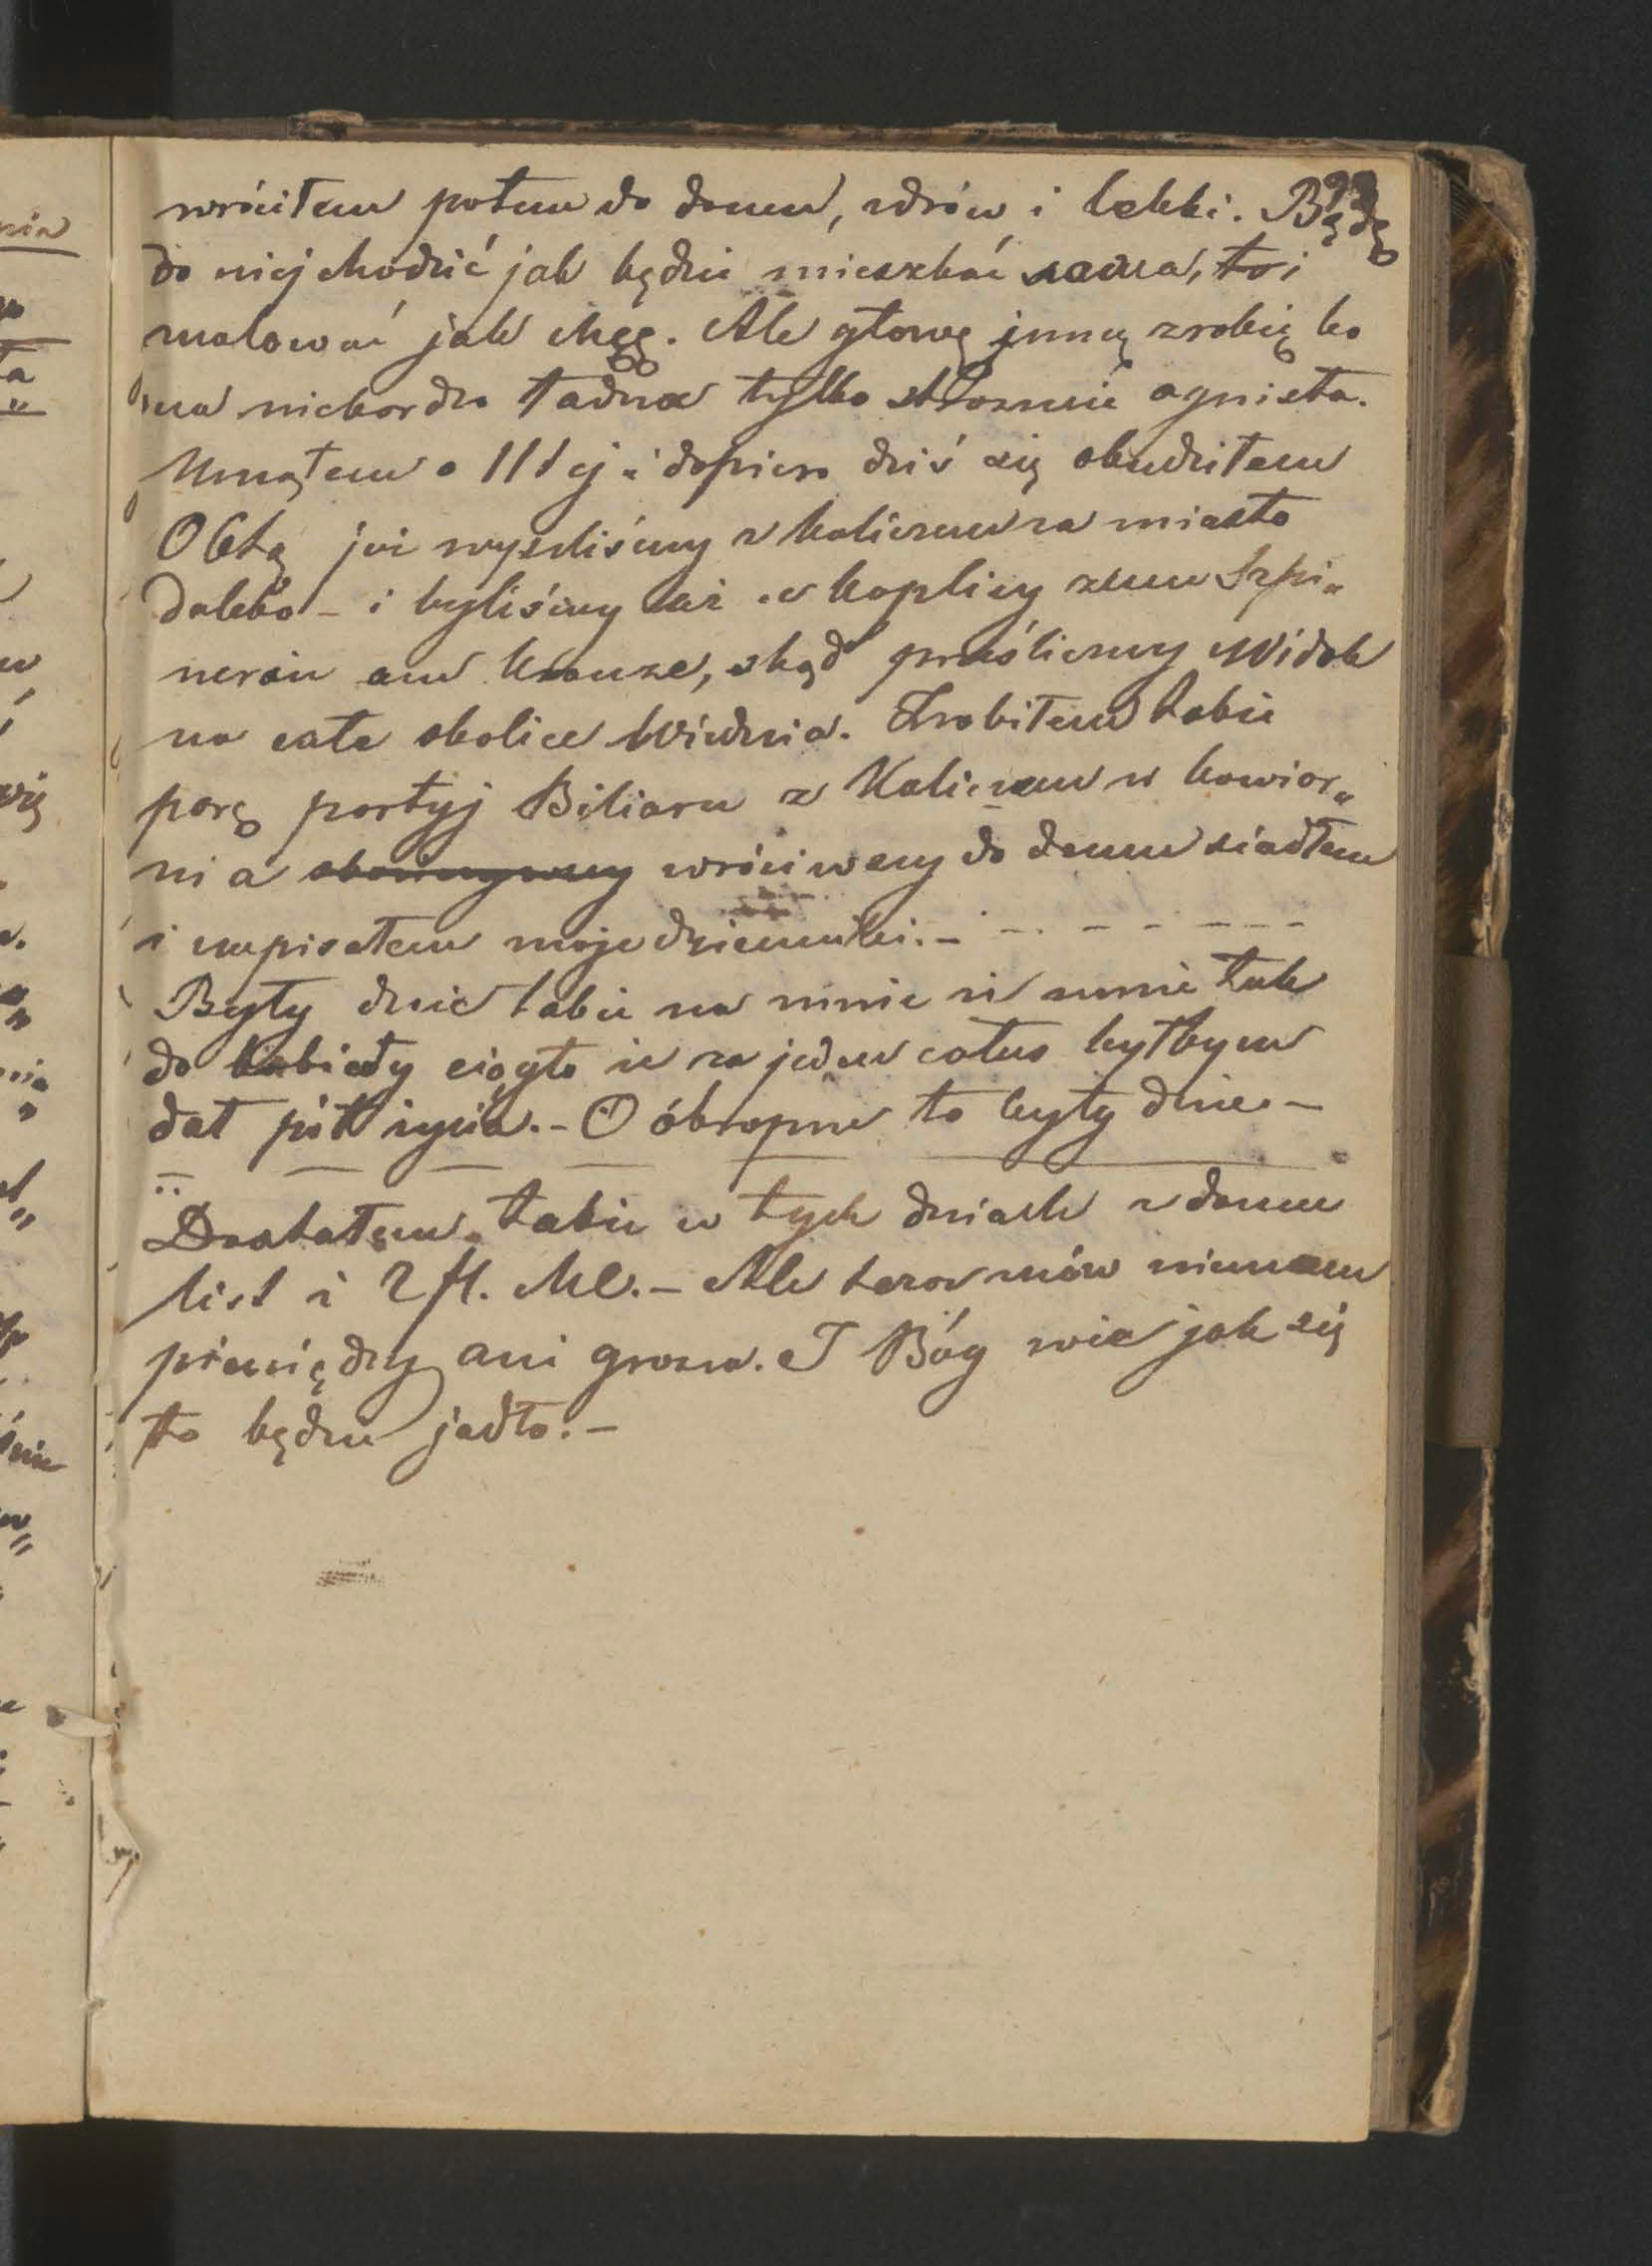 wróciłem potem do domu, zdrów i lekki. Będę
do niej chodzić jak będzie mieszkać sama, to i
malować jak chcę. Ale głowę inną zrobię bo
ona niebardzo ładna tylko strasznie ognista.
Usnąłem o 11tej i dopiero dziś się obudziłem
O 6tą już wyszliśmy z Kaliczem za miasto
daleko – i byliśmy aż w kaplicy zum Szpi„
nerin am Krauze, skąd prześliczny Widok
na całe okolice Wiednia. Zrobiłem także
parę partyj Biliaru z Kaliczem w kawiar„
ni a wróciwszy do domu siadłem
i napisałem moje dzienniki. –
Były dnie także na mnie iż mnie tak
do kobiety ciągło iż za jeden całus byłbym
dał pół życia. – O ókropne to były dnie –
Dostałem także w tych dniach z domu
list i 2 fl. MC. – Ale teraz znów niemam
pieniędzy ani grosza. I Bóg wie jak się
to będzie jadło. –